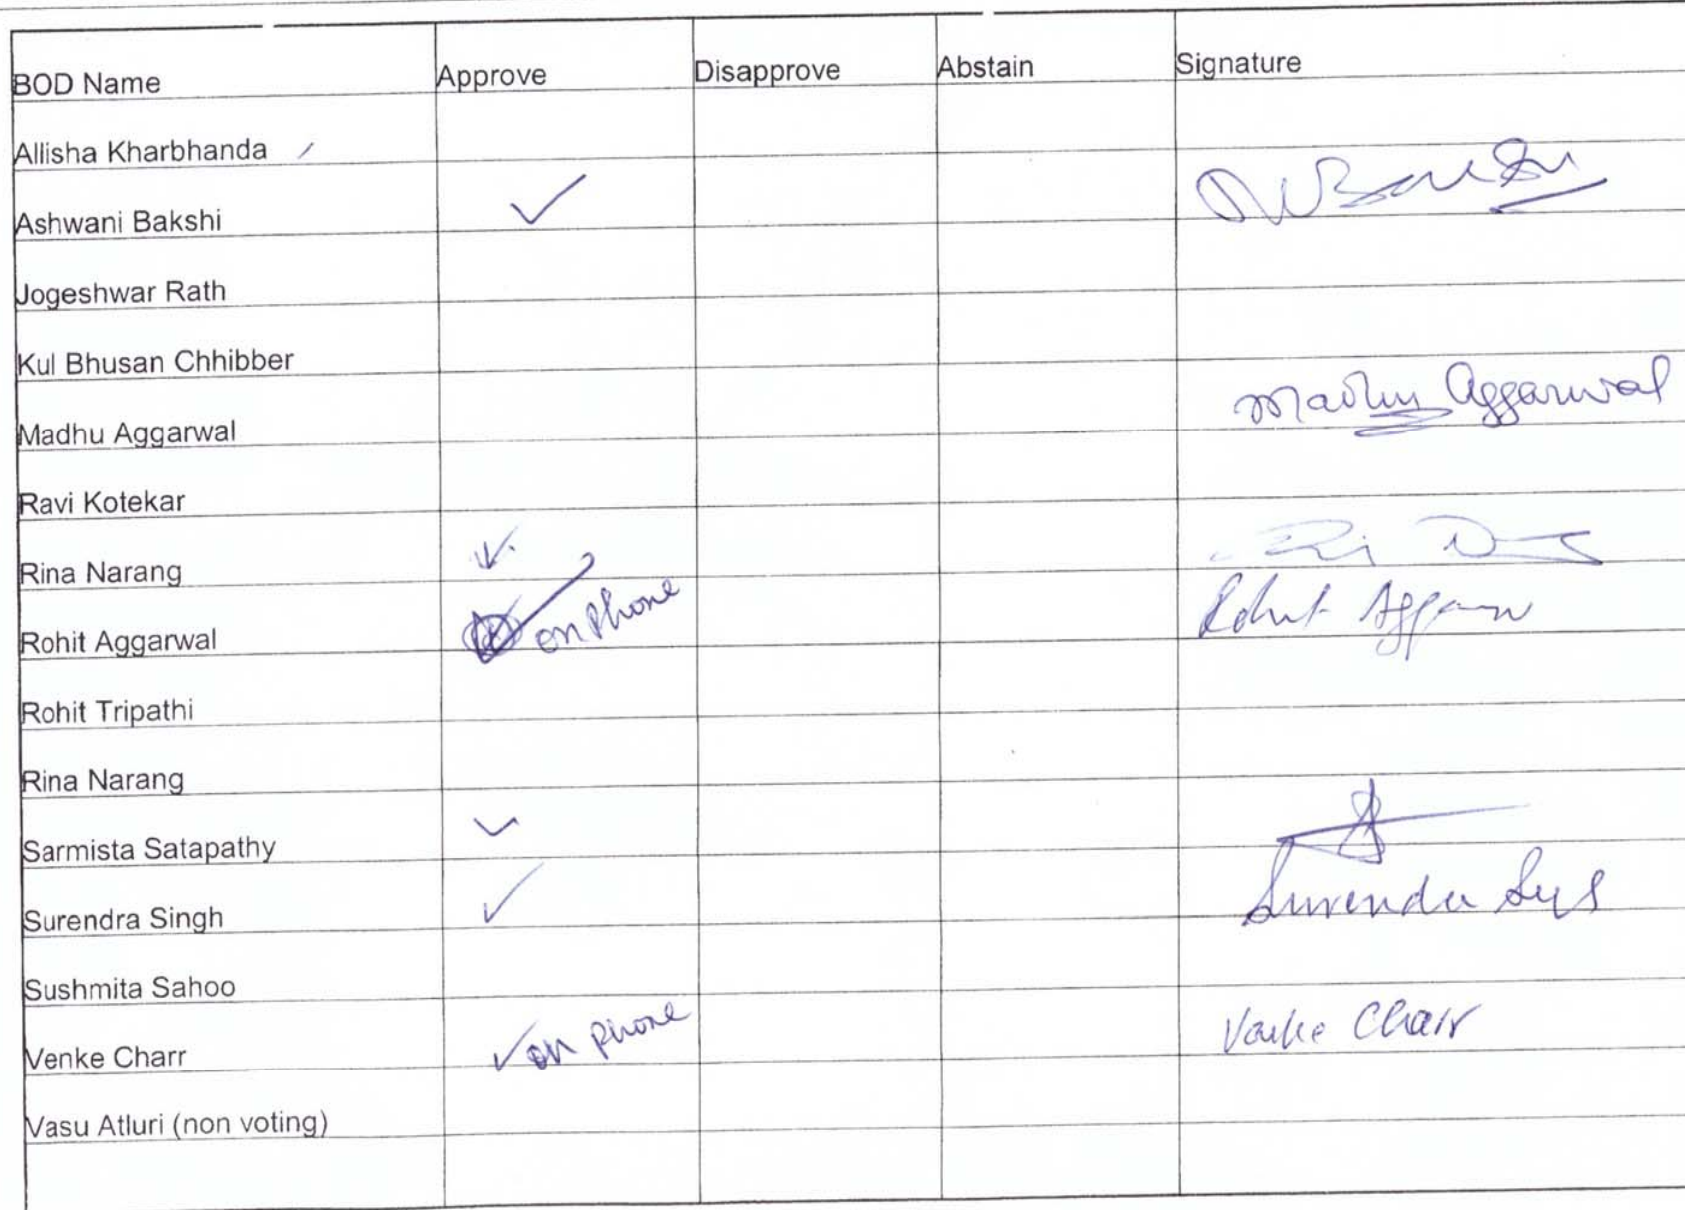 BOD Name Approve Disapprove Abstain Signature
Allisha Kharbhanda
Ashwani Bakshi ✓ Bakshi
Jogeshwar Rath
Kul Bhusan Chhibber
Madhu Aggarwal Madhu Aggarwal
Ravi Kotekar
Rina Narang ✓
Rohit Aggarwal ✓ on Phone Rohit
Rohit Tripathi
Rina Narang
Sarmista Satapathy ✓
Surendra Singh ✓ Surendra
Sushmita Sahoo
Venke Charr ✓ on phone Venke Charr
Vasu Atluri (non voting)